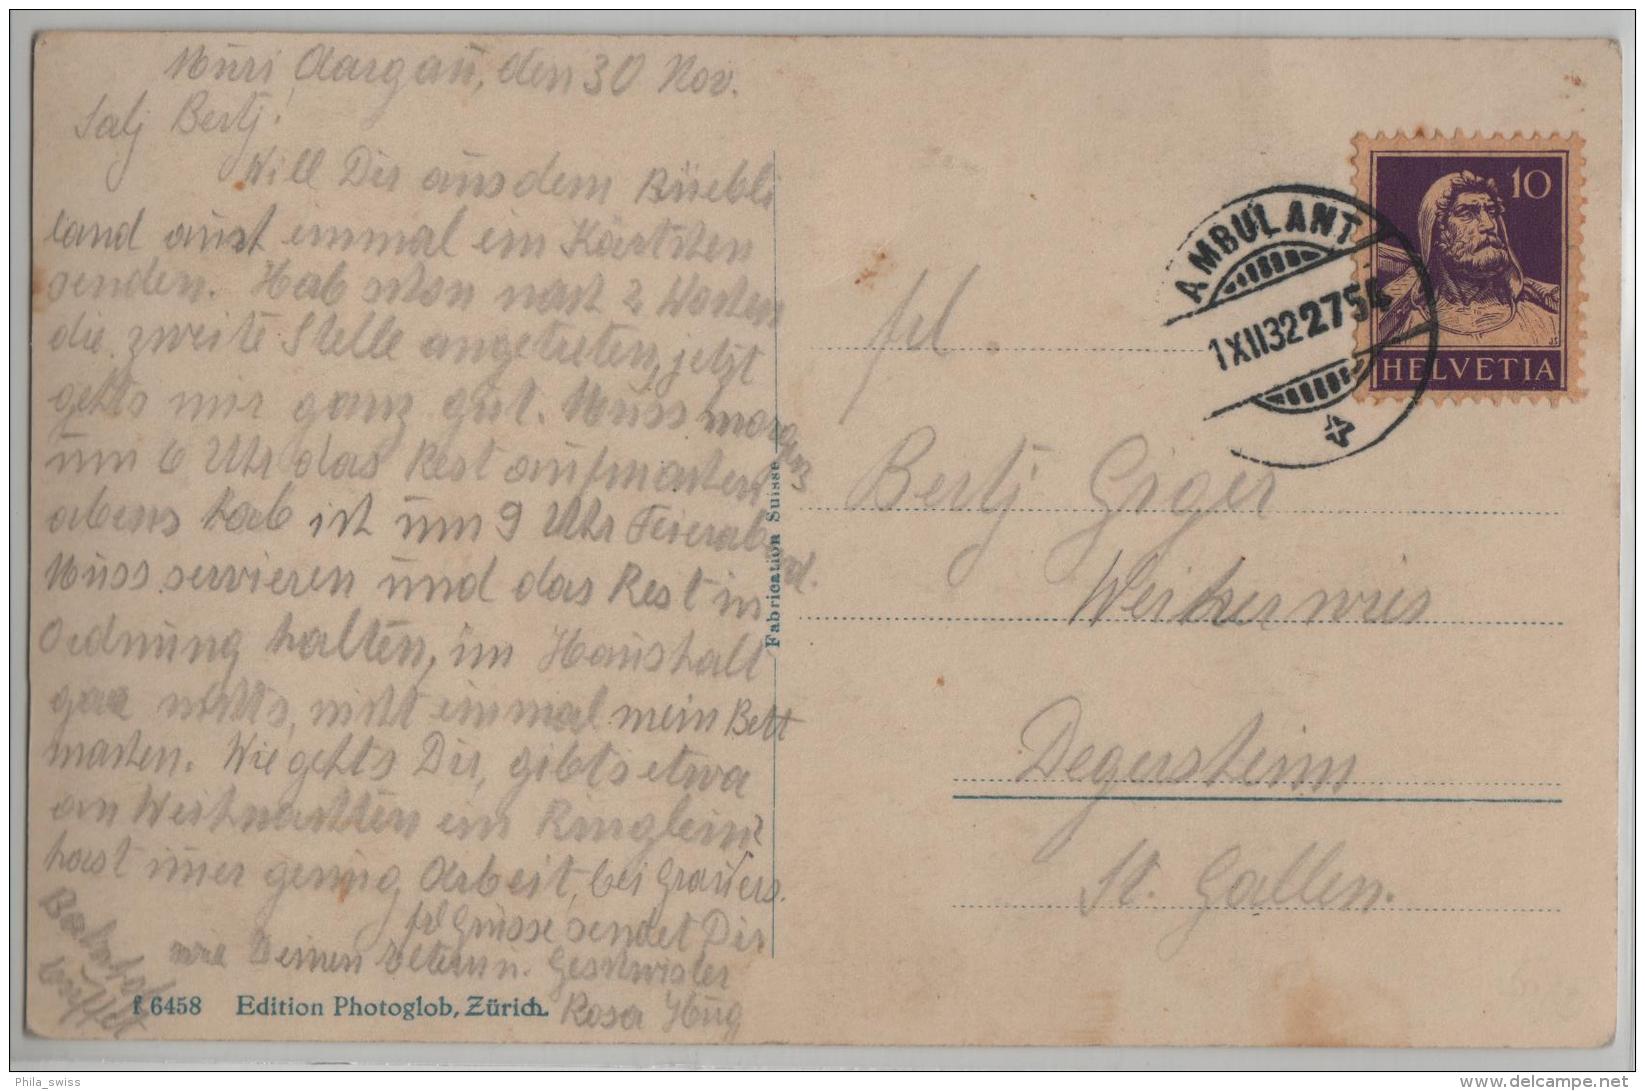 Muri, Aargau, den 30 Nov.
Salj Bertj!
Will Dir aus dem Rüebli
land auch einmal ein Kärtchen
senden. Hab schon nach 2 Wochen
die zweite Stelle angetreten, jetzt
gehts mir ganz gut. Muss morgens
um 6 Uhr das Rest aufmachen
abens hab ich um 9 Uhr Feierabend.
Muss servieren und das Rest in
Ordnung halten, im Haushalt
gar nichts, nicht einmal mein Bett
machen. Wie gehts Dir, gibts etwa
an Weihnachten ein Ringlein?
hast imer genug Arbeit, bei Grauers.
frl Grüsse sendet Dir
wie Deinen Eltern u. Geschwister
Rosa Hug
Bahnhof
buffet
f 6458 Edition Photoglob, Zürich.
Fabrication Suisse
AMBULANT
1XII32 2754
10
HELVETIA
frl.
Bertj Giger
Weiherwies
Degersheim
St. Gallen.
Phila_swiss
www.delcampe.net